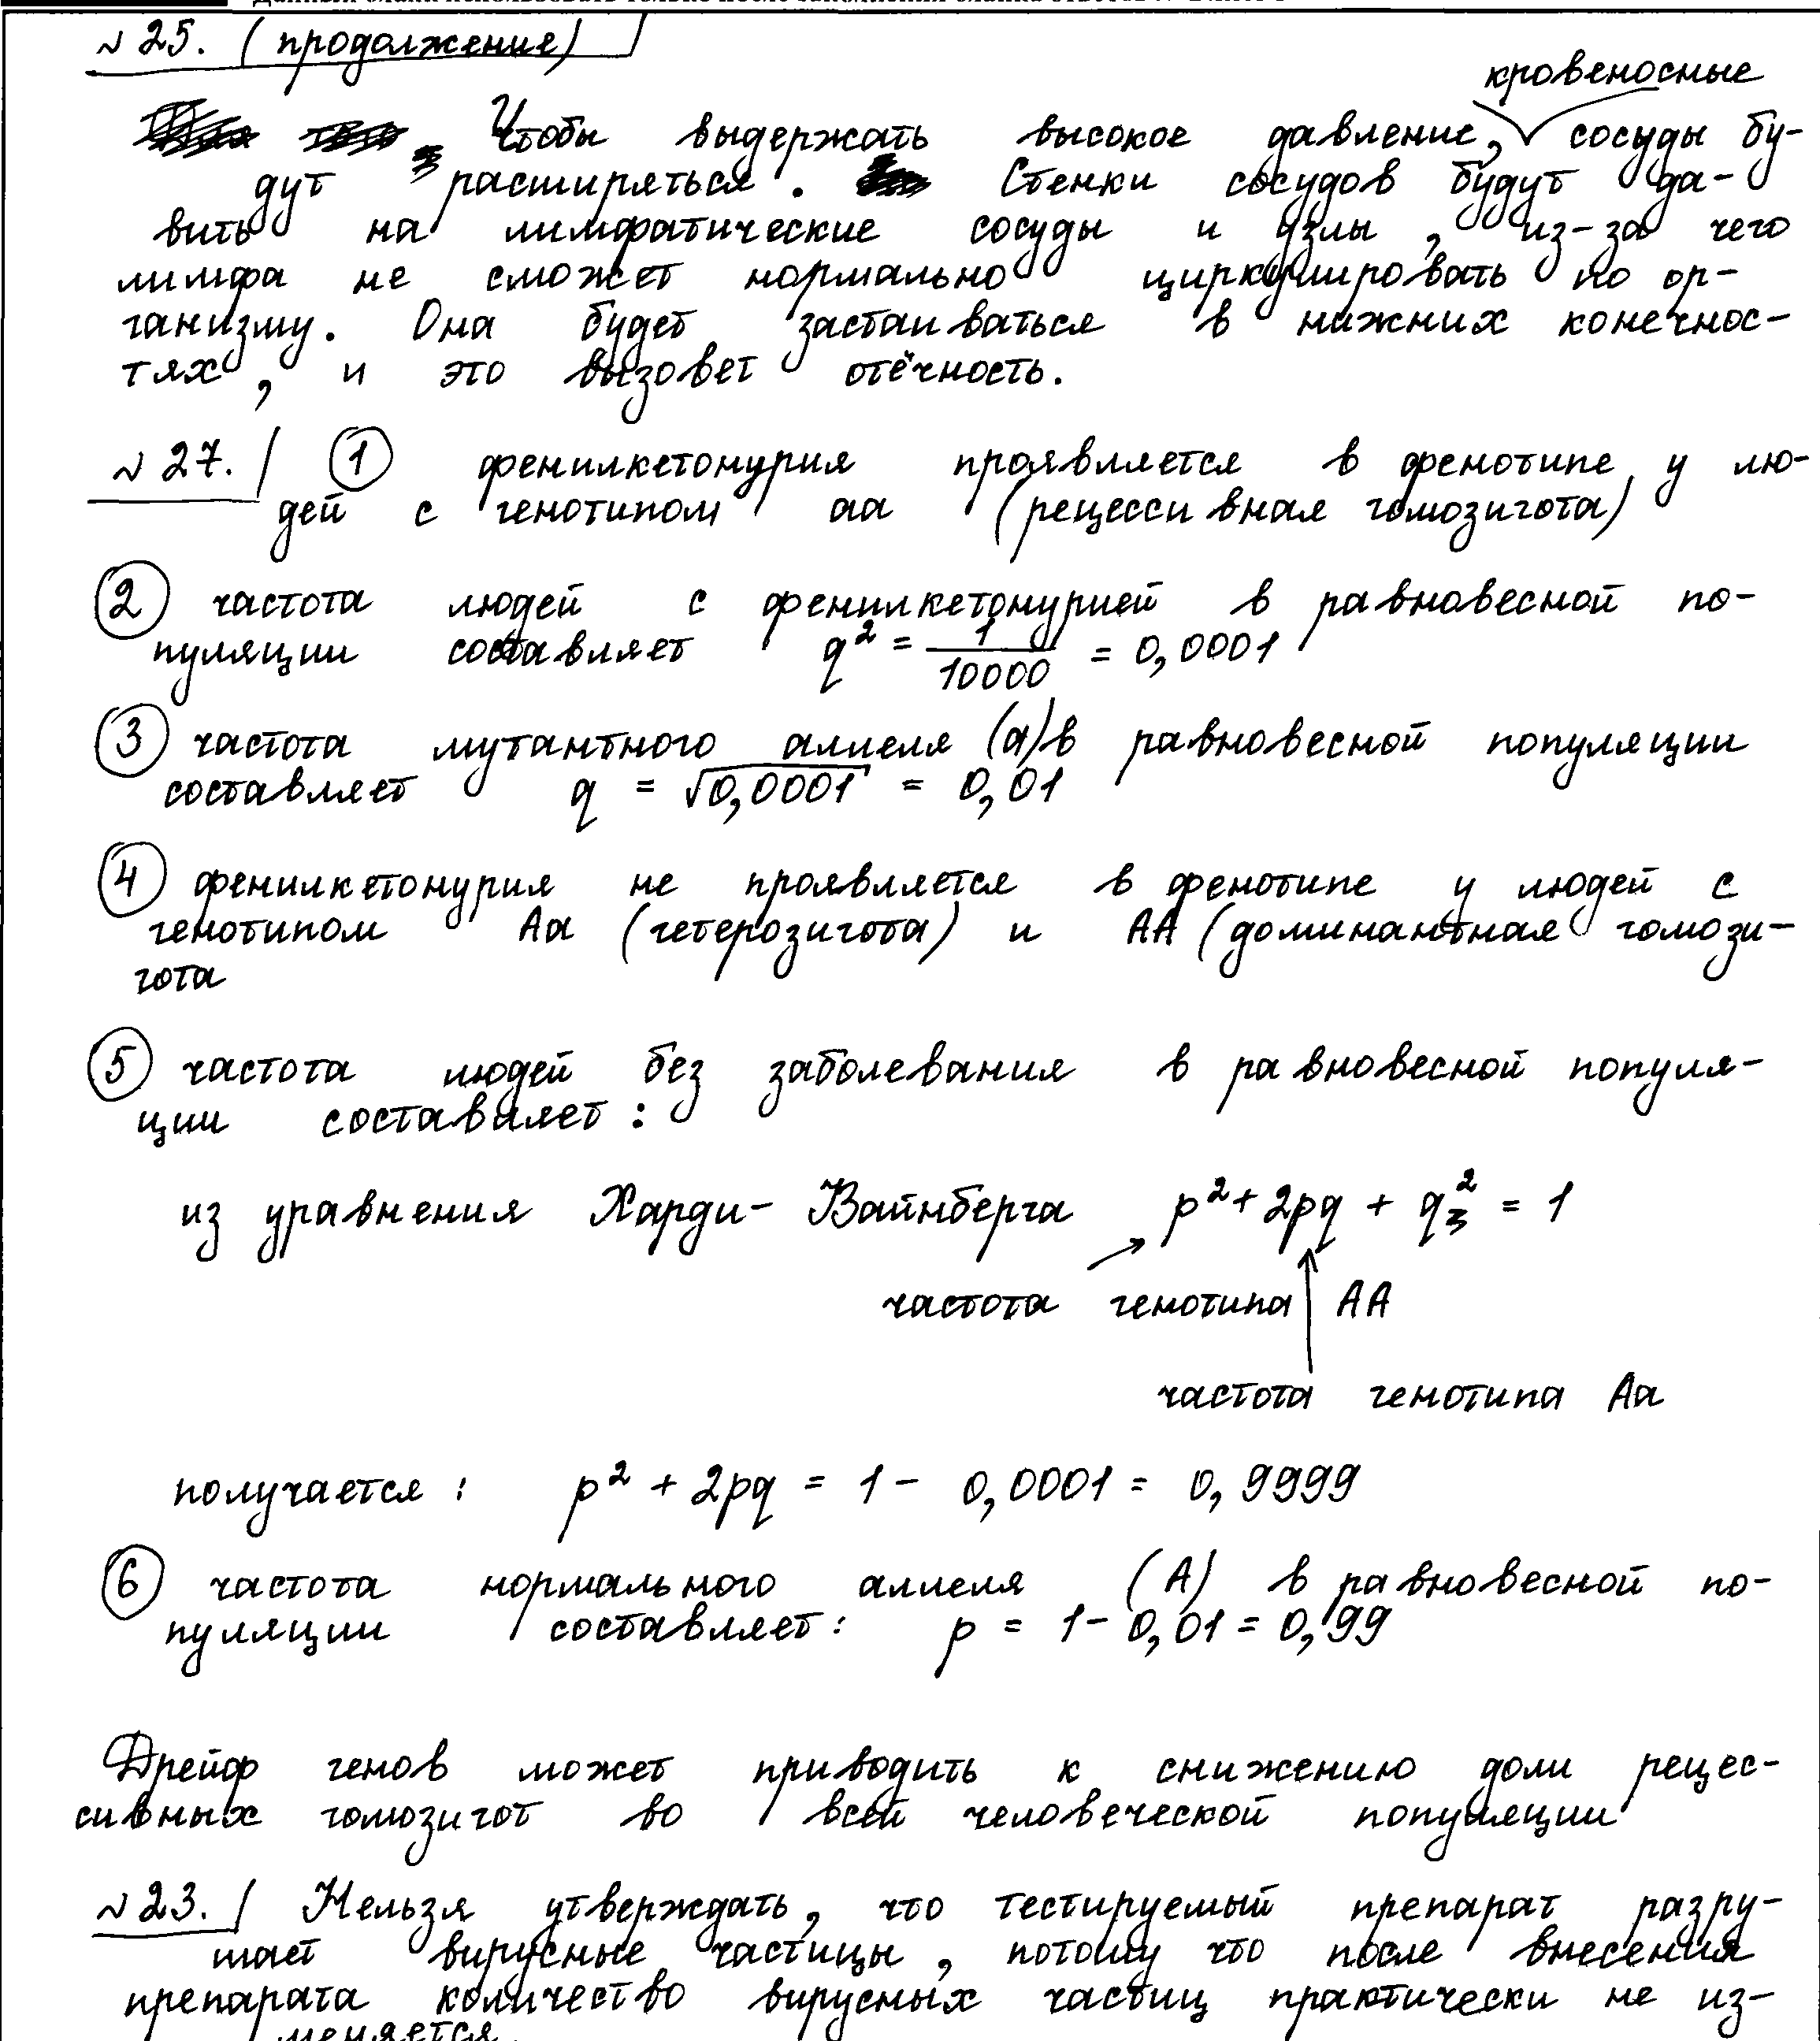 №25. (продолжение)
кровеносные
Чтобы выдержать высокое давление, сосуды бу-
дут расширяться. Стенки сосудов будут да-
вить на лимфатические сосуды и узлы, из-за чего
лимфа не сможет нормально циркулировать по ор-
ганизму. Она будет застаиваться в нижних конечнос-
тях, и это вызовет отёчность.
№27. ① фенилкетонурия проявляется в фенотипе у лю-
дей с генотипом аа (рецессивная гомозигота)
② частота людей с фенилкетонурией в равновесной по-
пуляции составляет q² = 1/10000 = 0,0001
③ частота мутантного аллеля (а) в равновесной популяции
составляет q = √0,0001 = 0,01
④ фенилкетонурия не проявляется в фенотипе у людей с
генотипом Аа (гетерозигота) и АА (доминантная гомози-
гота
⑤ частота людей без заболевания в равновесной популя-
ции составляет:
из уравнения Харди-Вайнберга p² + 2pq + q² = 1
частота генотипа АА
частота генотипа Аа
получается: p² + 2pq = 1 - 0,0001 = 0,9999
⑥ частота нормального аллеля (А) в равновесной по-
пуляции составляет: p = 1 - 0,01 = 0,99
Дрейф генов может приводить к снижению доли рецес-
сивных гомозигот во всей человеческой популяции
№23. Нельзя утверждать, что тестируемый препарат разру-
шает вирусные частицы, потому что после внесения
препарата количество вирусных частиц практически не из-
меняется.